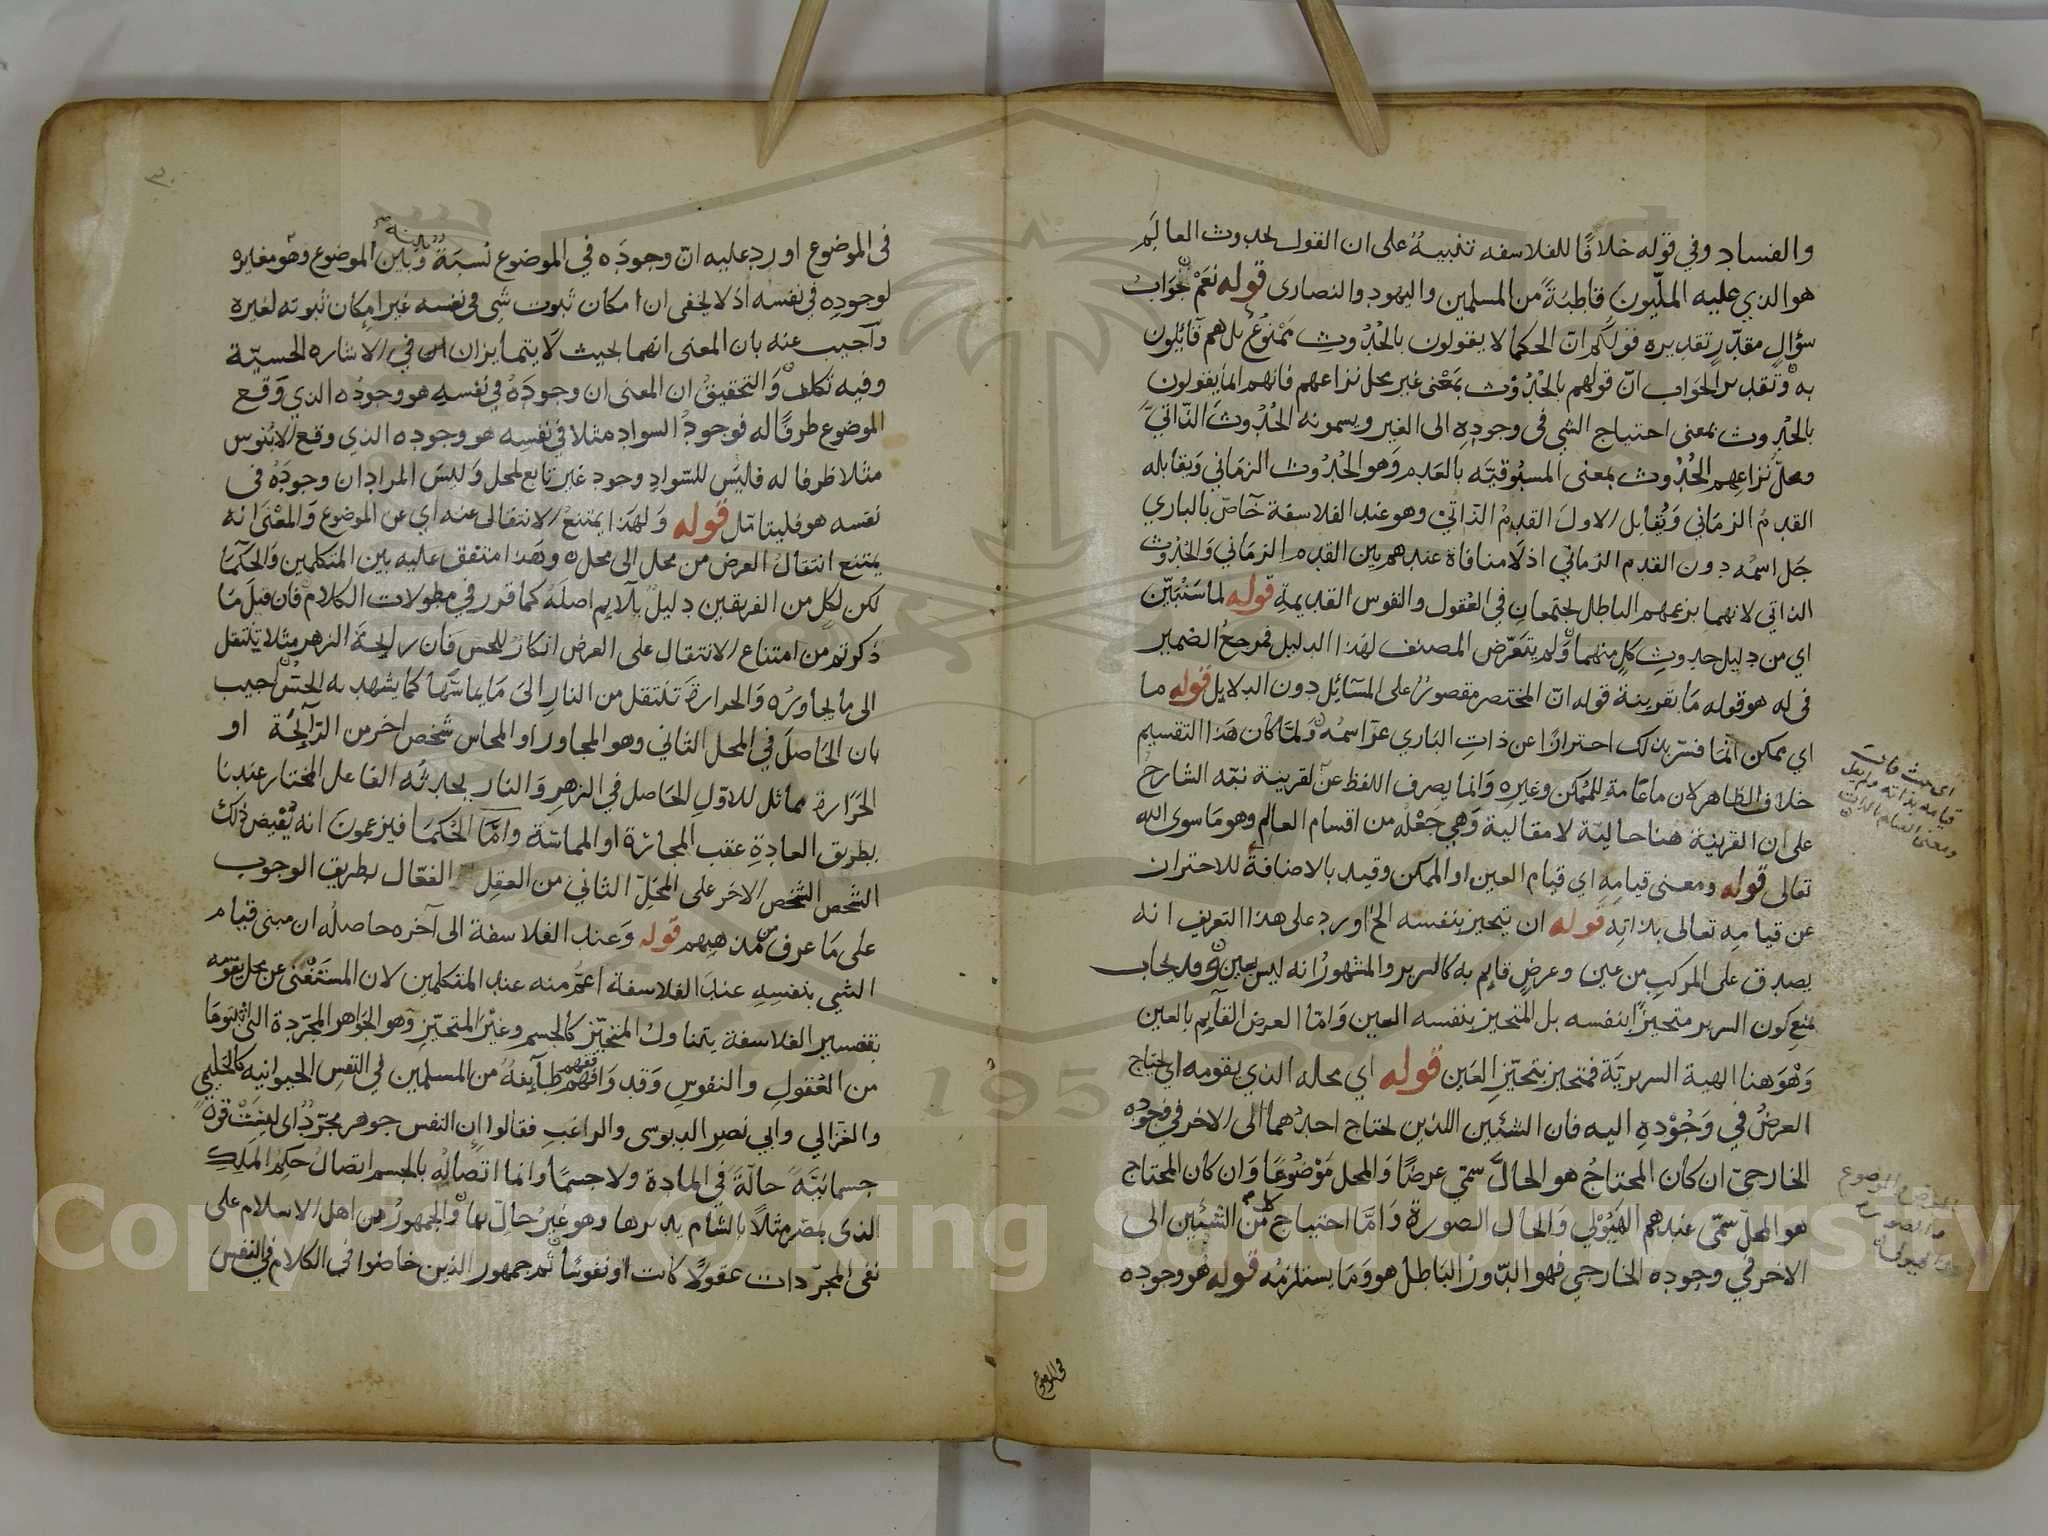 والفساد وفي قوله خلافًا للفلاسفه تنبيهٌ على ان القول بحدوث العالم
هو الذي عليه الملّيون قاطبةً من المسلمين واليهود والنصارى قوله نعم جوابُ
سؤالٍ مقدّرٍ تقديره قولكم انّ الحكما لا يقولون بالحُدُوثِ ممنُوعٌ بل هم قآئلون
به وتقدير الجواب انّ قولهم بالحُدُوث بمعنى غير محل نزاعهم فانهم انما يقولون
بالحُدوث بمعنى احتياج الشي في وجودِهِ الى الغير ويسمونه الحُدُوثَ الذّاتيَّ
ومحلّ نزاعِهِم الحُدُوث بمعنى المسبُوقيّه بالعَدم وَهو الحُدُوث الزمَاني ويقابله
القدمُ الزمَاني وَيُقابل الاولَ القدمُ الذّاتيّ وهو عند الفلاسفة خآصّ بالباري
جَل اسمُه دون القدم الزماني اذ لا منافاة عندهم بين القدم الزمَاني وَالحُدُوث
الذاتي لانهما بزعمهم الباطل يجتمعانِ في العُقول والنفوس القديمةِ قوله لما سَنُبَيّن
اي من دليل حدوثِ كلٍ منهما وَلم يتعَرّض المصنف لهذا الدليل فمرجعُ الضمير
في له هو قوله مَا بقرينة قوله انّ المختصر مقصورٌ على المسآئل دون الدلايل قوله ما
اي ممكن انّما فسّر بذلك احترازًا عن ذاتِ البَاري عزّ اسمُه وَلمّا كان هَذا التقسيم
خلاف الظاهر لان ما عَامة للمُمكن وغيرهِ وَانما يصرف اللفظ عن لقرينة نبّه الشارحُ
على ان القرينة هنا حاليّة لا مقالية وَهي جَعْلُه من اقسام العالم وهو مَا سوى الله
تعالى قوله ومعنى قيامِهِ اي قيَام العين او الممكن وقيد بالاضافةُ للاحتراز
عن قيامِه تعالى بذاتِه قوله ان يتحيز بنفسه الخ اورد على هذا التعريف انه
يصدق على المركب من عين وعرضٍ قايم به كالسرير والمشهورُ انه ليس بعين وقد يجاب
بمنعِ كون السرير متحيزًا بنفسه بل المتحيز بنفسه العين وَامّا العرض القآيم بالعين
وَهُوَ هنا الهيۀ السريريّة فمتحيز بتحيّزِ العَين قوله اي محله الذي يقومه اي يحتاج
العرضُ في وَجُوْدِهِ اليه فان الشئين اللذين يحتاج احدُهما الى الاخر في وجُوده
الخارجيّ ان كان المحتاجُ هو الحالَّ سمّي عرضًا وَالمحل مَوْضُوعًا وَان كان المحتاج
هو المحلّ سمّى عندهم الهيُوْلي وَالحال الصورة وَامَّا احتياج كل من الشئين الى
الاخر في وجوده الخارجي فهو الدّورُ البَاطلُ هو وَمَا يستلزمُه قوله هُو وجوده
في الموضوع
اى بحيث
قيامه بذاته
ومعنى
في الموضوع اورد عليه انّ وجودَه في الموضوع نسبَةٌ بينه وَبَين الموضوع وهُو مغايرٌ
لوجودِهِ في نفسه اذ لا يخفى ان امكان ثبوت شيٍ في نفسه غير امكان ثبوته لغيره
وآجيب عنه بان المعنى انهما بحيث لَا يتمايزان في الاشاره الحسيّة
وفيه تكلف وَالتحقيقُ ان المعنى ان وجودَهُ في نفسِهِ هو وجودُه الذي وَقع
الموضوع ظرفًا له فوجودُ السوادِ مثلا في نفسِه هو وجوده الذي وقع الابنوس
مثلا ظرفا له فليسَ للسّوادِ وجود غير تابع لمحل وَليسَ المراد ان وجودَهُ في
نفسه هو فليتامّل قوله وَلهذا يمتنعُ الانتقالُ عنه اي عن الموضوع وَالمعْنى انه
يمتنع انتقالُ العرض من محل الى محل وهَذا متفق عليه بين المتكلمين وَالحكمَا
لكن لكلٍ من الفريقين دليلٌ يلآيم اصلَه كما قرر في مطولات الكلام فان قيلَ مَا
ذكرتم من امتناع الانتقال على العرض انكارٌ للحس فان رايحة الزهر مثلا يَنْتقل
الى ما يجاورُه وَالحرارة تَنتقل من النارِ الى مَا يماسّها كما يشهد به الحسّ اجيب
بان الحَاصلَ في المحل الثاني وهو المجاور او المماس شخصٌ اخر من الرّآيحة او
الحَرَارة مماثل للاوّلِ الحَاصل في الزهرِ وَالنار يحدثه الفاعل المختار عندنا
بطريق العادةِ عقب المجاورة او المماسّة وَامّا الحُكمَا فيزعمُونَ انه يَفيض ذلك
الشخص الشخص الاخر على المحَلّ الثاني من العقلِ الفعّال بطريق الوجوب
على مَا عرف من مذهبهم قوله وَعند الفلاسفة الى آخره حاصلُه ان مبنى قيام
الشي بنفسِهِ عندَ الفلاسفة اعمُّ منه عند المتكلمين لان المستَغنى عن محل يقوّمه
بتفسير الفلاسفة يتناول المتحيّز كالجسم وغيْر المتحيّزِ وهو الجَواهر المجرّدة التي اثبتوهَا
من العُقولِ والنفوسِ وَقد وَافقهم طآيفةٌ من المسلمين في النّفسِ الحيوانيه كالحَليمي
والغزالي وابي نصرِ الدبوسى والراغبِ فقالوا ان النفس جوهر مجرّدٌ اى ليسَتْ قوة
جسمانيّةً حالّةً في المادة ولا جسمًا وانما اتصالُه بالجسم اتصالُ حكمِ الملكِ
الذي بمصر مثلًا بالشام يدبرها وهو غيرُ حالّ بها وَالجمهورُ من اهل الاسلام على
نفى المجرّدات عقولًا كانت او نفوسًا ثم جمهور الذين خاضوا في الكلام في النفس
Copyright © King Saud University
195